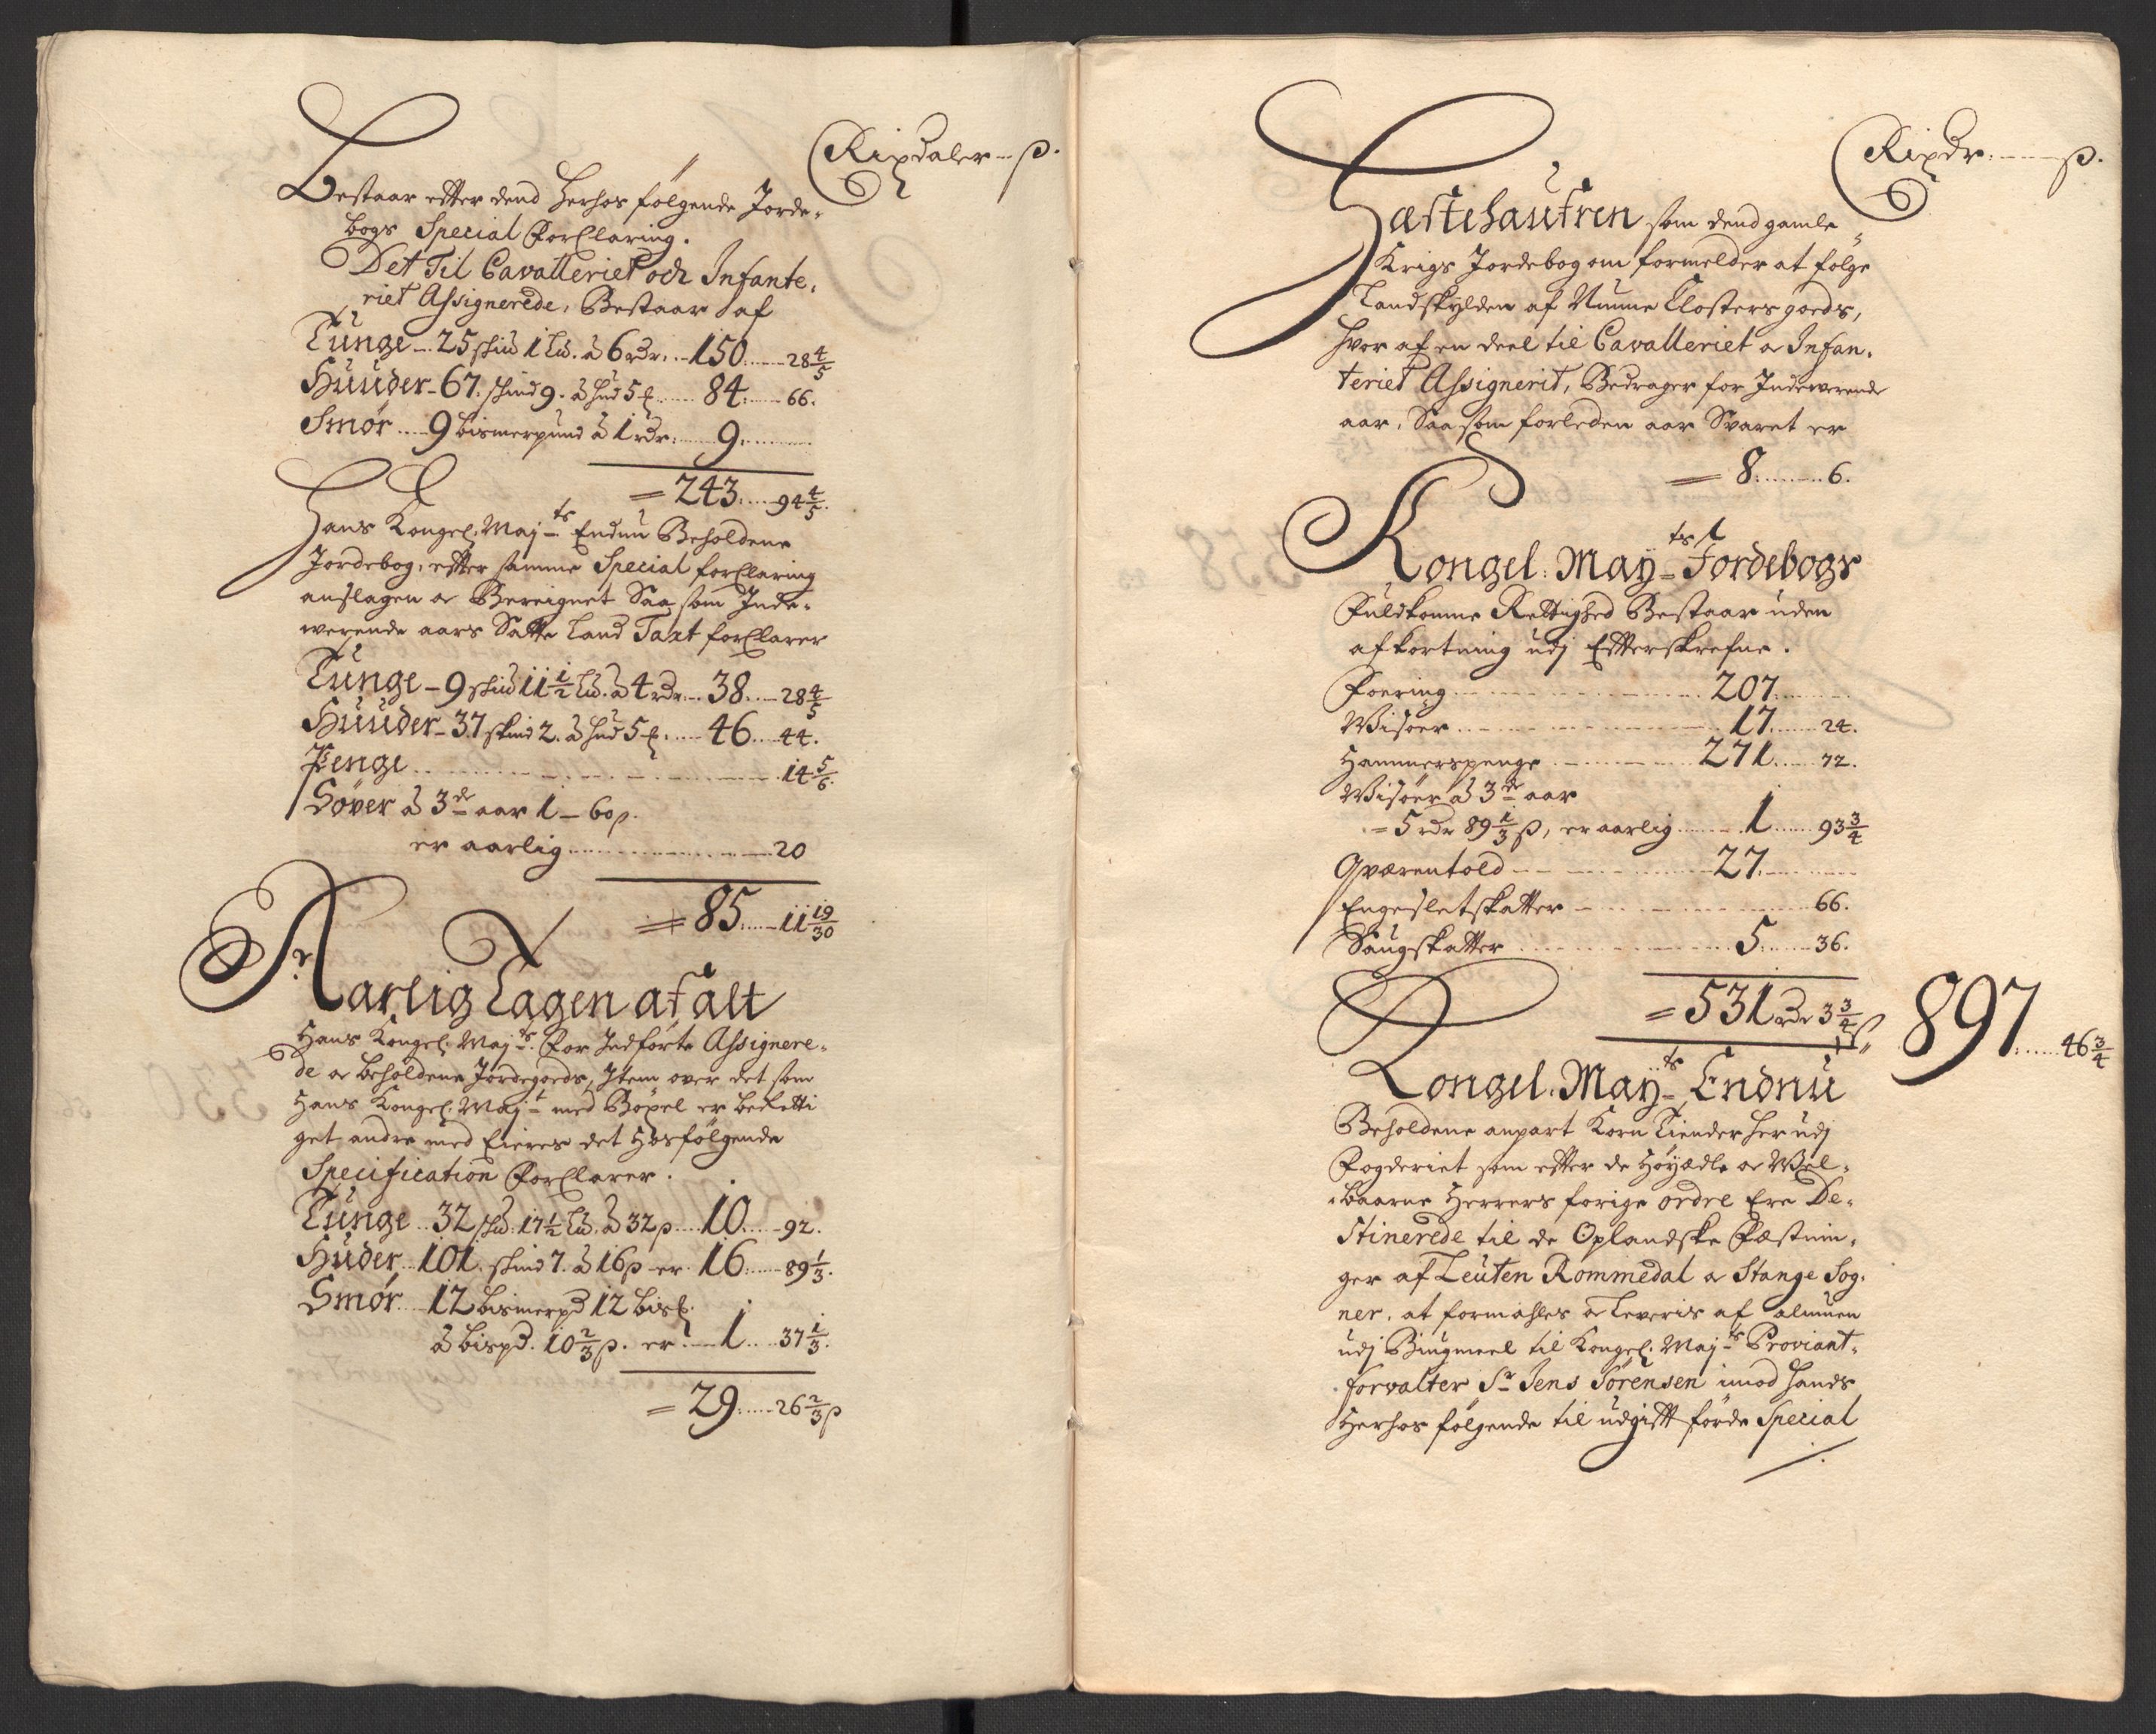 Rixdaler -- ß.
Bestaar efter dend herhos følgende Jorde-
bogs Special Forclaring.
Det Til Cavalleriet och Infante-
riet Assignerede, Bestaar af
Tunge - 25 skind 1 Ld. à 6 rdr. 150 28 4/5
Huuder - 67. skind 9. à hud 5 ß 84. 66.
Smør 9 bismerpund à 1 rdr. 9.
= 243. 94 4/5.
Hans Kongel. Maj-ts Endnu Beholdene
Jordebog, efter samme Special forclaring
anslagen oc Beregnet Saa som Inde-
werende aars Satte Land Taxt forclarer
Tunge - 9 skd 11 1/2 Ld. à 4 rdr. 38. 28 4/5
Huuder - 37 skind 2. à hud 5 ß. 46. 44.
Penge 14 5/6.
Søver à 3de aar 1 - 60 ß.
er aarlig 20
= 85. 11 19/30
Aarlig Tagen af alt
Hans Kongel. Maj-ts. For Indførte Assignere-
de oc beholdene Jordegoeds, Item over det som
Hans Kongel. Maj-t med Bøxel er beretti
get andre med Eieres det Hosfølgende
Specification Forclarer.
Tunge 32 skd. 17 1/2 Ld. à 32 ß 10. 92.
Huder 101. skind 7. à 16 ß er 16. 89 1/3.
Smør 12 bismerpd 12 bisß.
à bispd. 10 2/3 ß. er 1. 37 1/3.
= 29. 26 2/3 ß
Rixdr. ß.
Hæstehaufren som dend gamle
Krigs Jordebog om formelder at følge
Landskylden af Nunne Closters goeds,
hvor af en deel til Cavalleriet oc Infan-
teriet Assignerit, Bedrager for Indewerende
aar, Saa som forleden aar Svaret er
= 8. 6.
Kongel. May-ts Jordebogs
Fuldkomne Rettighed Bestaar uden
afkortning udj Efterskrefne.
Foering 207.
Wisøer 17. 24.
Hammerspenge 271. 72.
Wisøer à 3de aar
= 5 rdr 89 1/3 ß, er aarlig 1. 93 3/4
Qværentold 27.
Engesletskatter 66.
Saugskatter 5. 36.
= 531 rdr 3 3/4 ß
897. 46 3/4
Kongel. May-ts Endnu
Beholdene anpart Korn Tiender her udj
Fogderiet som efter de Høyædle oc Wel-
baarne Herrers forige ordre Ere De-
stinerede til de Oplandske Fæstnin-
ger af Leuten Rommedal oc Stange Sog-
ner, at formahles oc leveris af almuen
udj Biugmeel til Kongel. Maj-ts Proviant-
forvalter Sr Jens Sørensen imod hands
Herhos følgende til udgift førde Special